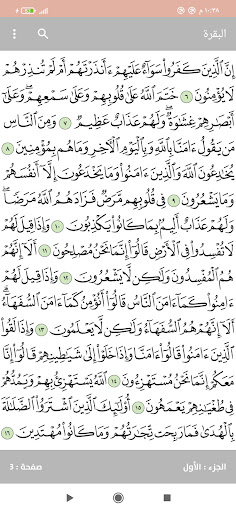 ١٠:٣٨ م
البقرة
إِنَّ ٱلَّذِينَ كَفَرُوا۟ سَوَآءٌ عَلَيْهِمْ ءَأَنذَرْتَهُمْ أَمْ لَمْ تُنذِرْهُمْ
لَا يُؤْمِنُونَ ٦ خَتَمَ ٱللَّهُ عَلَىٰ قُلُوبِهِمْ وَعَلَىٰ سَمْعِهِمْ ۖ وَعَلَىٰٓ
أَبْصَٰرِهِمْ غِشَٰوَةٌ ۖ وَلَهُمْ عَذَابٌ عَظِيمٌ ٧ وَمِنَ ٱلنَّاسِ
مَن يَقُولُ ءَامَنَّا بِٱللَّهِ وَبِٱلْيَوْمِ ٱلْءَاخِرِ وَمَا هُم بِمُؤْمِنِينَ ٨
يُخَٰدِعُونَ ٱللَّهَ وَٱلَّذِينَ ءَامَنُوا۟ وَمَا يَخْدَعُونَ إِلَّآ أَنفُسَهُمْ
وَمَا يَشْعُرُونَ ٩ فِى قُلُوبِهِم مَّرَضٌ فَزَادَهُمُ ٱللَّهُ مَرَضًا ۖ
وَلَهُمْ عَذَابٌ أَلِيمٌۢ بِمَا كَانُوا۟ يَكْذِبُونَ ١٠ وَإِذَا قِيلَ لَهُمْ
لَا تُفْسِدُوا۟ فِى ٱلْأَرْضِ قَالُوٓا۟ إِنَّمَا نَحْنُ مُصْلِحُونَ ١١ أَلَآ إِنَّهُمْ
هُمُ ٱلْمُفْسِدُونَ وَلَٰكِن لَّا يَشْعُرُونَ ١٢ وَإِذَا قِيلَ لَهُمْ
ءَامِنُوا۟ كَمَآ ءَامَنَ ٱلنَّاسُ قَالُوٓا۟ أَنُؤْمِنُ كَمَآ ءَامَنَ ٱلسُّفَهَآءُ ۗ
أَلَآ إِنَّهُمْ هُمُ ٱلسُّفَهَآءُ وَلَٰكِن لَّا يَعْلَمُونَ ١٣ وَإِذَا لَقُوا۟
ٱلَّذِينَ ءَامَنُوا۟ قَالُوٓا۟ ءَامَنَّا وَإِذَا خَلَوْا۟ إِلَىٰ شَيَٰطِينِهِمْ قَالُوٓا۟ إِنَّا
مَعَكُمْ إِنَّمَا نَحْنُ مُسْتَهْزِءُونَ ١٤ ٱللَّهُ يَسْتَهْزِئُ بِهِمْ وَيَمُدُّهُمْ
فِى طُغْيَٰنِهِمْ يَعْمَهُونَ ١٥ أُو۟لَٰٓئِكَ ٱلَّذِينَ ٱشْتَرَوُا۟ ٱلضَّلَٰلَةَ
بِٱلْهُدَىٰ فَمَا رَبِحَت تِّجَٰرَتُهُمْ وَمَا كَانُوا۟ مُهْتَدِينَ ١٦
الجزء : الأول صفحة : 3